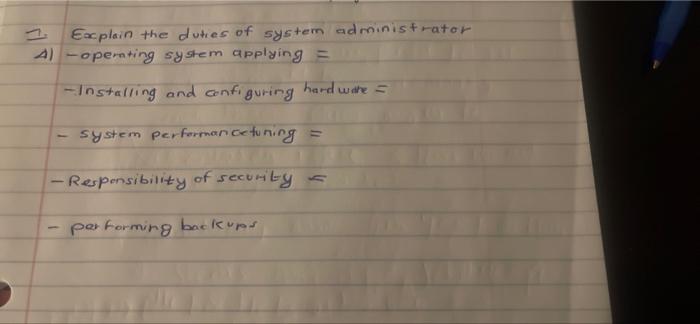 1 Explain the duties of system administrator
A) - operating system applying =
- Installing and configuring hardware =
- system performance tuning =
- Responsibility of security =
- performing backups